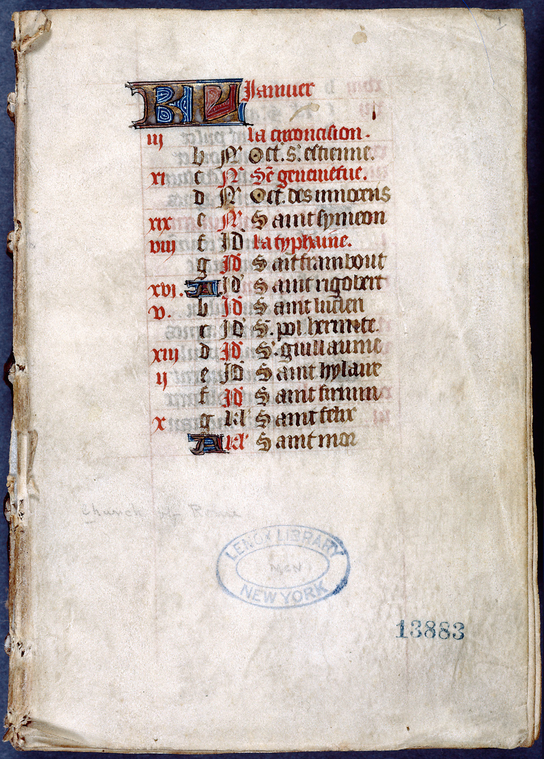 1
KL Januier
iij la circoncision.
b N Oct. S. estienne.
xi c N Sē geneuefue.
d N Oct. des innocens
xix e N Saint symeon
viij f ID la typhaine.
g ID Sait frambout
xvi. A ID Saint rigobert
v. b ID Saint lucien
c ID S. pol hermite.
xiij d ID S. guillaume
ij e ID Saint hylaire
f ID Saint firmin
x g kl' Saint felix
A kl' Saint mor
Church of Rome
LENOX LIBRARY
NEW YORK
13883